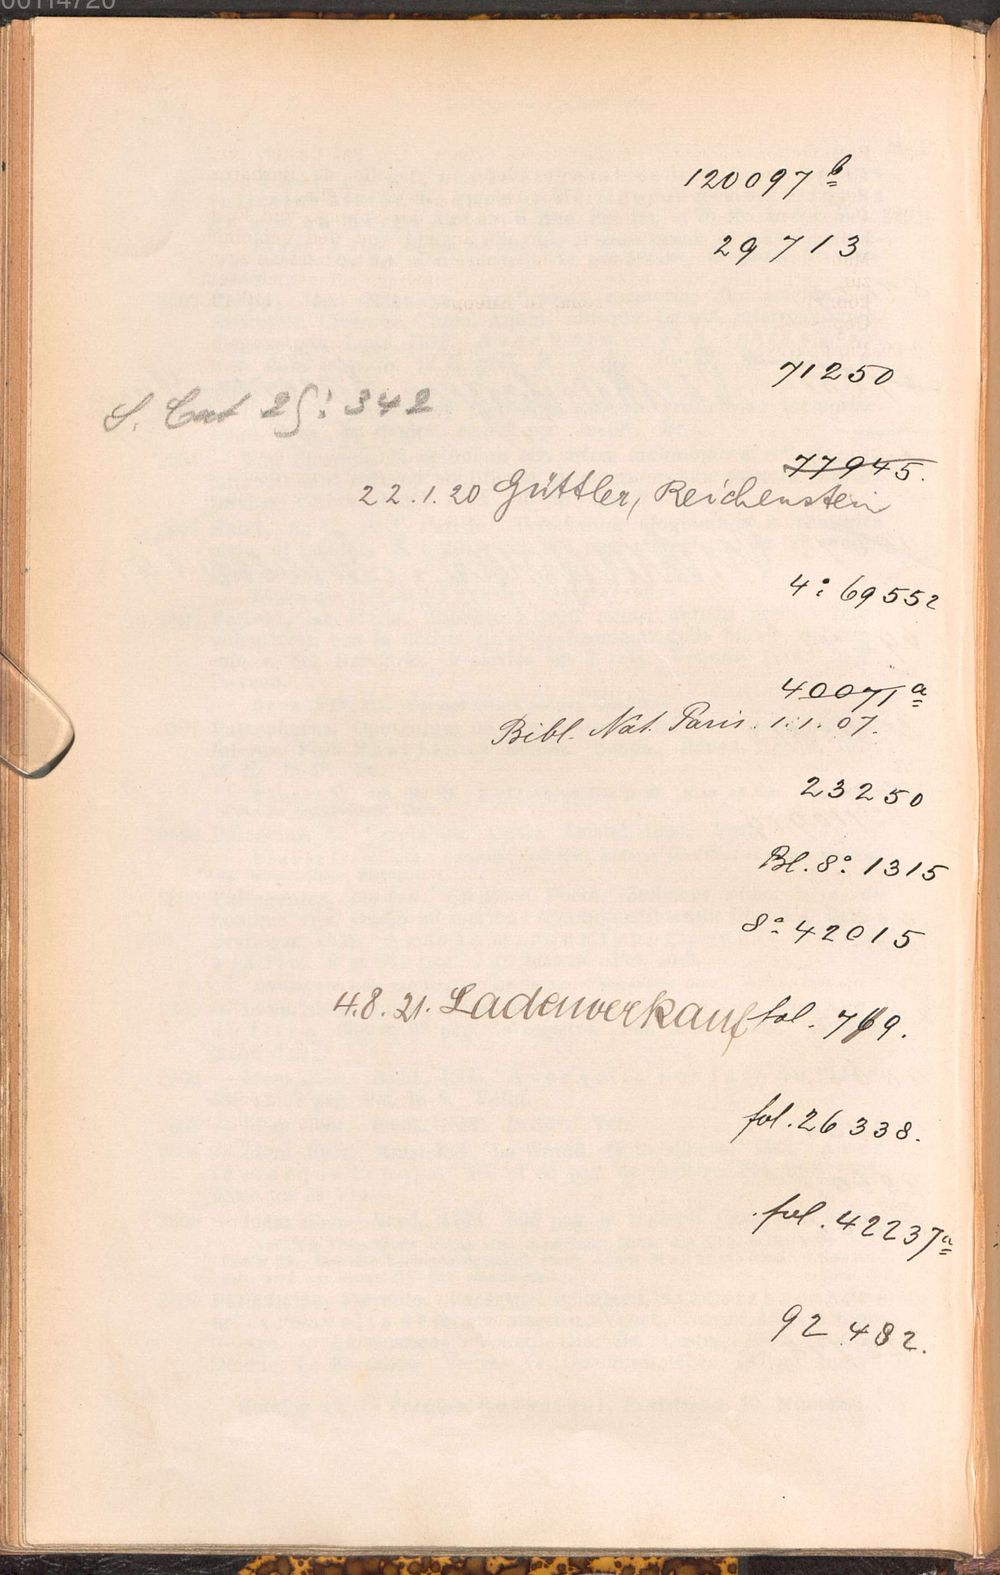 00114720
120097 b
29713
71250
S. Cat 25: 342
77945.
22.1.20 Güttler, Reichenstein
4: 69552
40071 a
Bibl. Nat. Paris. 1.1.07.
23250
Bl. 8° 1315
8° 42015
4.8.21. Ladenverkauf fol. 769.
fol. 26338.
fol. 42237 a
92482.